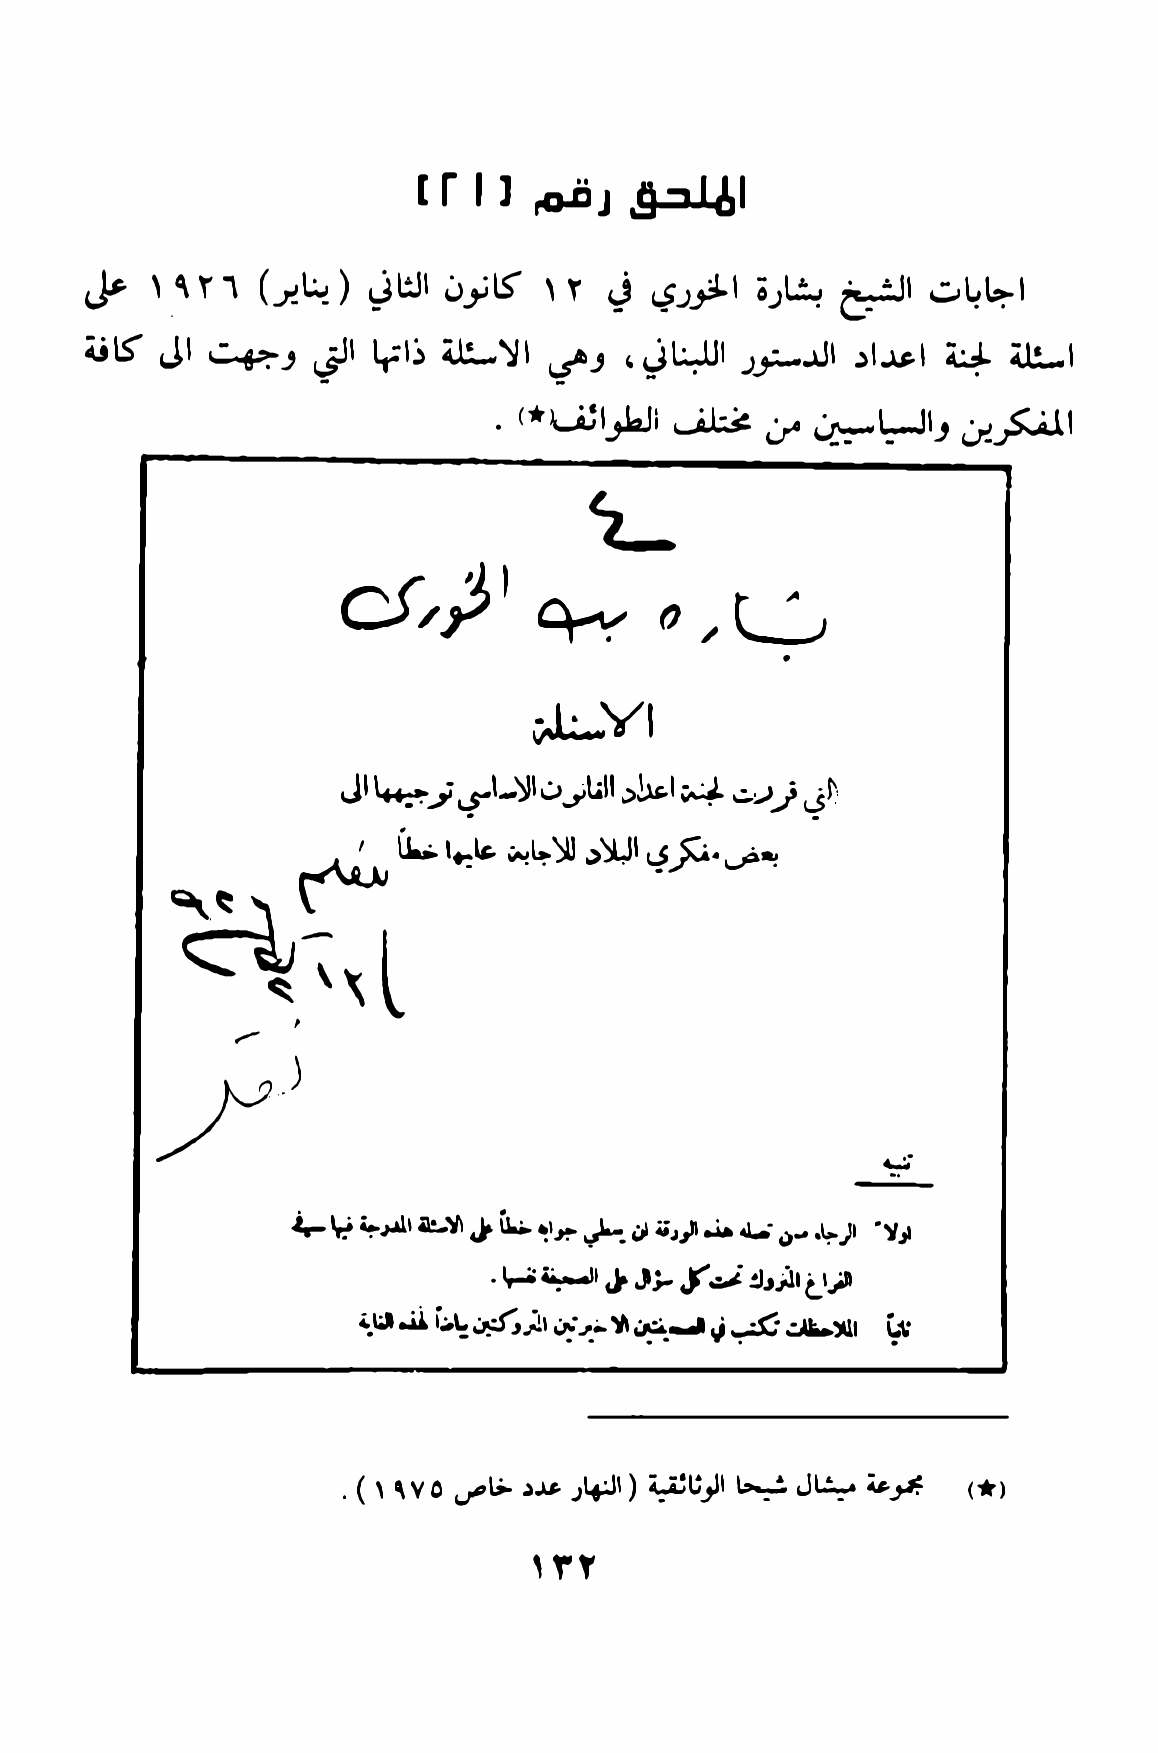 الملحق رقم [٢١]
اجابات الشيخ بشارة الخوري في ١٢ كانون الثاني (يناير) ١٩٢٦ على
اسئلة لجنة اعداد الدستور اللبناني، وهي الاسئلة ذاتها التي وجهت الى كافة
المفكرين والسياسيين من مختلف الطوائف(★) .
٤
بشاره بك الخوري
الاسئلة
التي قررت لجنة اعداد القانون الاساسي توجيهها الى
بعض مفكري البلاد للاجابة عليها خطاً
٩٢٦
١٢
تنبيه
اولاً الرجاء ممن تصله هذه الورقة ان يعطي جوابه خطاً على الاسئلة المدرجة فيها سيفي
الفراغ المتروك تحت كل سؤال على الصحيفة نفسها .
ثانياً الملاحظات تكتب في الصحيفتين الاخيرتين المتروكتين بياضاً لهذه الغاية
(★) مجموعة ميشال شيحا الوثائقية (النهار عدد خاص ١٩٧٥) .
١٣٢